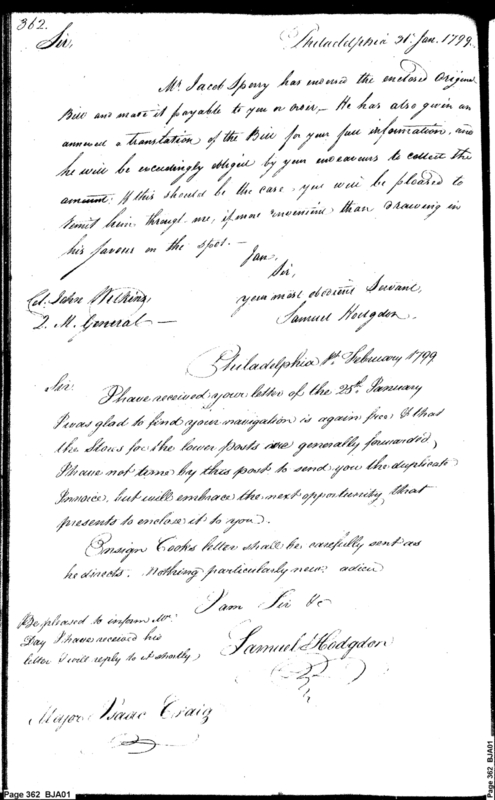 362.
Sir, Philadelphia 31st Jan. 1799.
Mr. Jacob Sperry has indorsed the enclosed Original
Bill and made it payable to you or order,— He has also given an
annexed a translation of the Bill for your full information, and
he will be exceedingly obliged by your endeavours to collect the
amount. If this should be the case, you will be pleased to
remit him through me, if more convenient than drawing in
his favour on the spot.—
I am,
Sir,
your most obedient Servant,
Samuel Hodgdon.
Col. John Wilkins,
Q. M. General —
Philadelphia 1st. February 1799
Sir
I have received your letter of the 25th. January
I was glad to find your navigation is again free & that
the Stores for the lower posts are generally forwarded,
I have not time by this post to send you the duplicate
Invoice, but will embrace the next opportunity that
presents to enclose it to you.
Ensign Cooks letter shall be carefully sent as
he directs. Nothing particularly new. adieu
I am Sir &c
Samuel Hodgdon
Be pleased to inform Mr.
Day I have received his
letter & will reply to it shortly
Major Isaac Craig
Page 362 BJA01
Page 362 BJA01